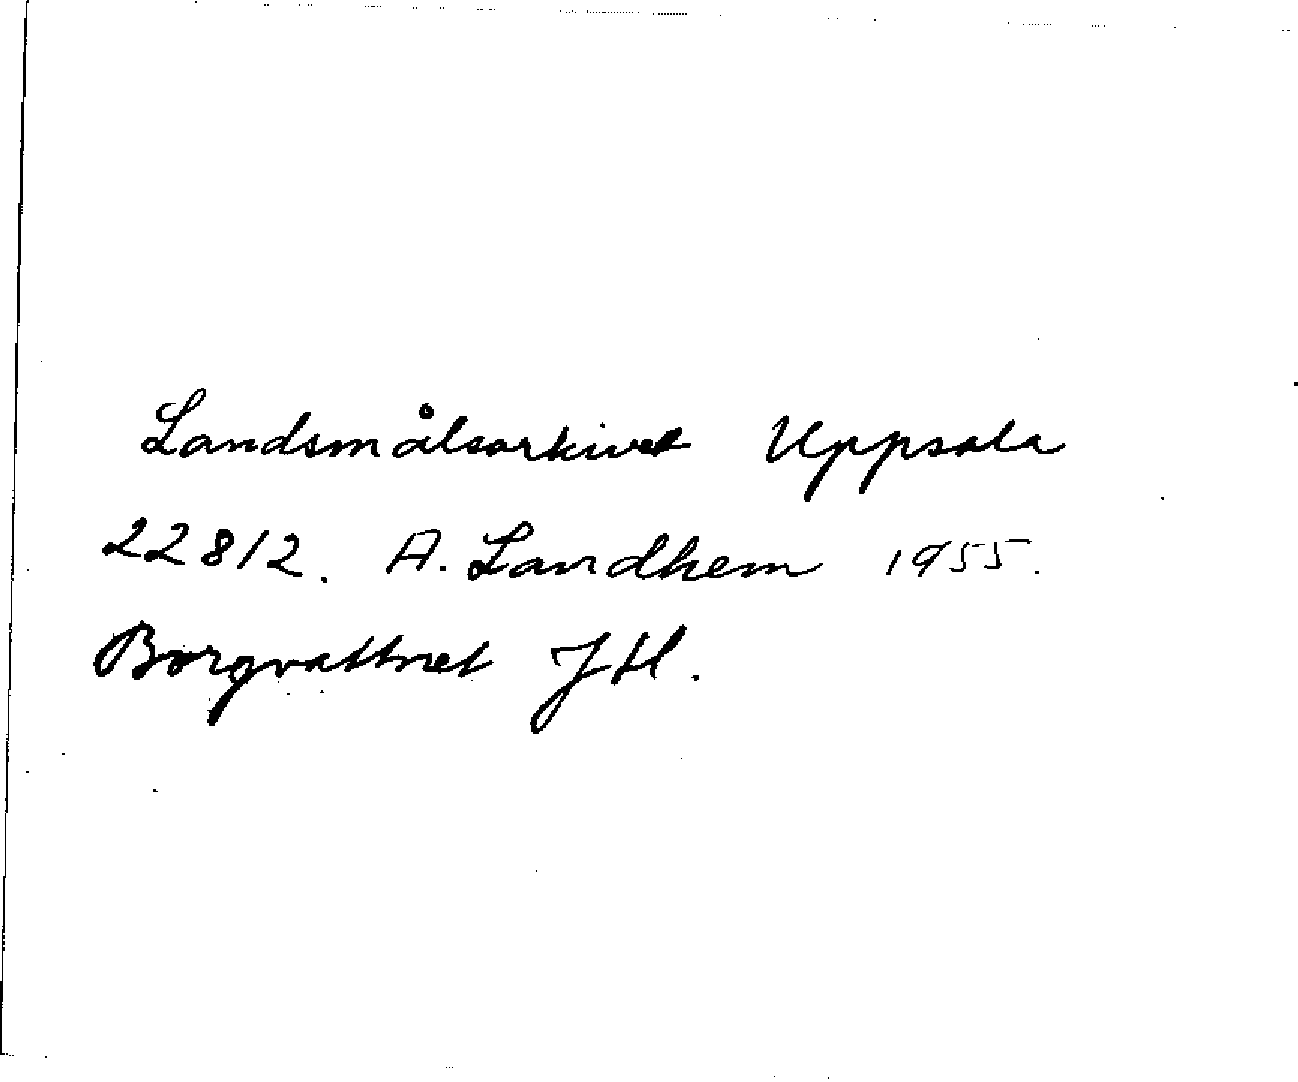 Landsmålsarkivet Uppsala
22812. A. Landhem 1955.
Borgvattnet Jtl.